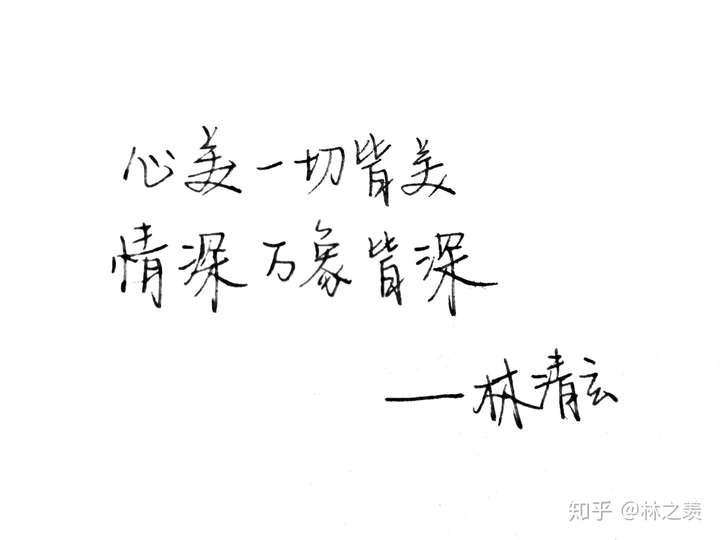 心美一切皆美
情深万象皆深
——林清玄
知乎 @林之羡